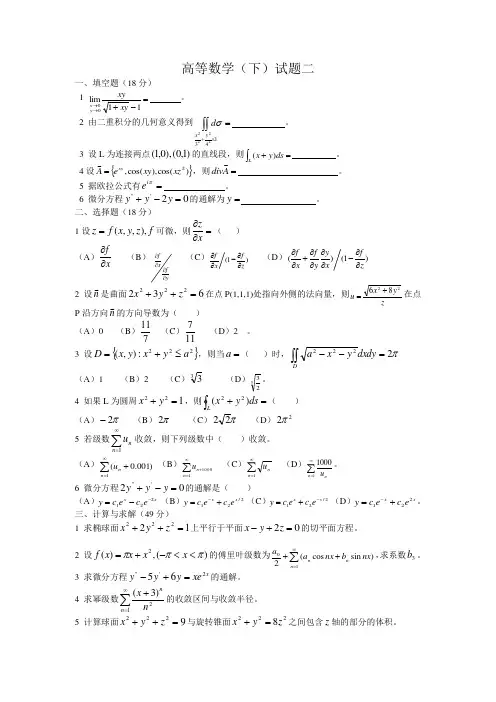 高等数学（下）试题二
一、填空题（18分）
1 $\lim_{\substack{x\to 0\\ y\to 0}}\frac{xy}{\sqrt{1+xy}-1}=$ ____ 。
2 由二重积分的几何意义得到 $\iint_{\frac{x^2}{3^2}+\frac{y^2}{4^2}\le 1}d\sigma=$ ____ 。
3 设L为连接两点(1,0),(0,1)的直线段，则$\int_L(x+y)ds=$ ____ 。
4设 ，则$div\vec{A}=$ ____ 。
5 据欧拉公式有$e^{i\pi}=$ ____ 。
6 微分方程$y''+y'-2y=0$的通解为$y=$ ____ 。
二、选择题（18分）
1设$z=f(x,y,z),f$可微，则$\frac{\partial z}{\partial x}=$（ ）
（A）$\frac{\partial f}{\partial x}$ （B） （C）$\frac{\partial f}{\partial x}/(1-\frac{\partial f}{\partial z})$ （D）$(\frac{\partial f}{\partial x}+\frac{\partial f}{\partial y}\frac{\partial y}{\partial x})/(1-\frac{\partial f}{\partial z})$
2 设$\vec{n}$是曲面$2x^2+3y^2+z^2=6$在点P(1,1,1)处指向外侧的法向量，则$u=\frac{\sqrt{6x^2+8y^2}}{z}$在点
P沿方向$\vec{n}$的方向导数为（ ）
（A）0 （B）$\frac{11}{7}$ （C）$\frac{7}{11}$ （D）2 。
3 设$D=\{(x,y):x^2+y^2\le a^2\}$，则当$a=$（ ）时，$\iint_D\sqrt{a^2-x^2-y^2}dxdy=2\pi$
（A）1 （B）2 （C）$\sqrt[3]{3}$ （D）$\sqrt[3]{\frac{3}{2}}$。
4 如果L为圆周$x^2+y^2=1$，则$\oint_L(x^2+y^2)ds=$（ ）
（A）$-2\pi$ （B）$2\pi$ （C）$2\sqrt{2}\pi$ （D）$2\pi^2$
5 若级数$\sum_{n=1}^{\infty}u_n$收敛，则下列级数中（ ）收敛。
（A）$\sum_{n=1}^{\infty}(u_n+0.001)$ （B）$\sum_{n=1}^{\infty}u_{n+1000}$ （C）$\sum_{n=1}^{\infty}\sqrt{u_n}$ （D）$\sum_{n=1}^{\infty}\frac{1000}{u_n}$。
6 微分方程$2y''+y'-y=0$的通解是（ ）
（A）$y=c_1e^x-c_2e^{-2x}$（B）$y=c_1e^{-x}+c_2e^{x/2}$（C）$y=c_1e^x+c_2e^{-x/2}$（D）$y=c_1e^{-x}+c_2e^{2x}$。
三、计算与求解（49分）
1 求椭球面$x^2+2y^2+z^2=1$上平行于平面$x-y+2z=0$的切平面方程。
2 设$f(x)=\pi x+x^2,(-\pi<x<\pi)$的傅里叶级数为$\frac{a_0}{2}+\sum_{n=1}^{\infty}(a_n\cos nx+b_n\sin nx)$，求系数$b_3$。
3 求微分方程$y''-5y'+6y=xe^{2x}$的通解。
4 求幂级数$\sum_{n=1}^{\infty}\frac{(x+3)^n}{n^2}$的收敛区间与收敛半径。
5 计算球面$x^2+y^2+z^2=9$与旋转锥面$x^2+y^2=8z^2$之间包含$z$轴的部分的体积。